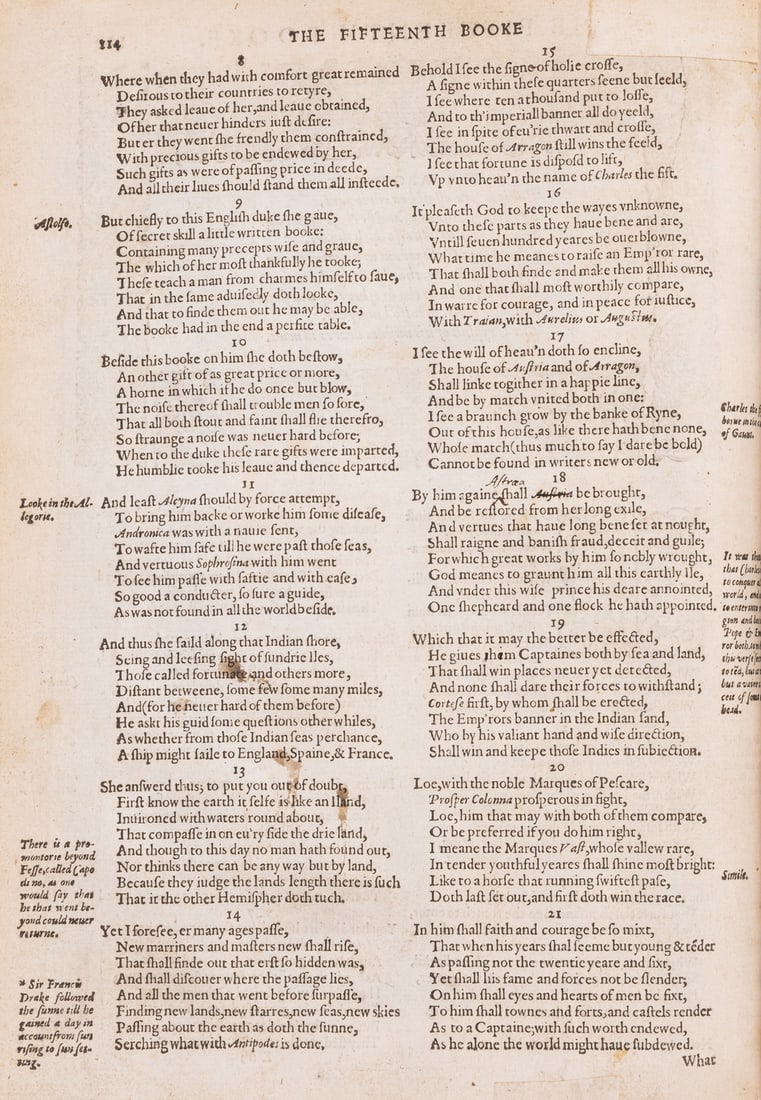 114
THE FIFTEENTH BOOKE
8
Where when they had with comfort great remained
Deſirous to their countries to retyre,
They asked leaue of her, and leaue obtained,
Of her that neuer hinders iuſt deſire:
But er they went ſhe frendly them conſtrained,
With precious gifts to be endewed by her,
Such gifts as were of paſſing price in deede,
And all their liues ſhould ſtand them all inſteede.
9
Aſtolfo.
But chiefly to this Engliſh duke ſhe gaue,
Of ſecret skill a little written booke:
Containing many precepts wiſe and graue,
The which of her moſt thankfully he tooke;
Theſe teach a man from charmes himſelf to ſaue,
That in the ſame aduiſedly doth looke,
And that to finde them out he may be able,
The booke had in the end a perfite table.
10
Beſide this booke on him ſhe doth beſtow,
An other gift of as great price or more,
A horne in which if he do once but blow,
The noiſe thereof ſhall trouble men ſo ſore,
That all both ſtout and faint ſhall flie therefro,
So ſtraunge a noiſe was neuer hard before;
When to the duke theſe rare gifts were imparted,
He humblie tooke his leaue and thence departed.
11
Looke in the Al-
legorie.
And leaſt Alcyna ſhould by force attempt,
To bring him backe or worke him ſome diſeaſe,
Andronica was with a nauie ſent,
To wafte him ſafe till he were paſt thoſe ſeas,
And vertuous Sophroſina with him went
To ſee him paſſe with ſaftie and with eaſe,
So good a conducter, ſo ſure a guide,
As was not found in all the world beſide.
12
And thus ſhe ſaild along that Indian ſhore,
Seing and leeſing ſight of ſundrie Iles,
Thoſe called fortunate and others more,
Diſtant betweene, ſome few ſome many miles,
And (for he neuer hard of them before)
He askt his guid ſome queſtions other whiles,
As whether from thoſe Indian ſeas perchance,
A ſhip might ſaile to England, Spaine, & France.
13
She anſwerd thus; to put you out of doubt,
Firſt know the earth it ſelfe is like an Iland,
Inuironed with waters round about,
That compaſſe in on eu'ry ſide the drie land,
There is a pro-
montorie beyond
Feſſe, called Capo
di no, as one
would ſay that
he that went be-
yond could neuer
returne.
And though to this day no man hath found out,
Nor thinks there can be any way but by land,
Becauſe they iudge the lands length there is ſuch
That it the other Hemiſpher doth tuch.
14
Yet I foreſee, er many ages paſſe,
New marriners and maſters new ſhall riſe,
That ſhall finde out that erſt ſo hidden was,
And ſhall diſcouer where the paſſage lies,
* Sir Francis
Drake followed
the ſunne till he
gained a day in
account from ſun
riſing to ſun ſet-
ting.
And all the men that went before ſurpaſſe,
Finding new lands, new ſtarres, new ſeas, new skies
Paſſing about the earth as doth the ſunne,
Serching what with Antipodes is done.
15
Behold I ſee the ſigne of holie croſſe,
A ſigne within theſe quarters ſeene but ſeeld,
I ſee where ten a thouſand put to loſſe,
And to th'imperiall banner all do yeeld,
I ſee in ſpite of eu'rie thwart and croſſe,
The houſe of Arragon ſtill wins the feeld,
I ſee that fortune is diſpoſd to lift,
Vp vnto heau'n the name of Charles the fift.
16
It pleaſeth God to keepe the wayes vnknowne,
Vnto theſe parts as they haue bene and are,
Vntill ſeuen hundred yeares be ouerblowne,
What time he meanes to raiſe an Emp'ror rare,
That ſhall both finde and make them all his owne,
And one that ſhall moſt worthily compare,
In warre for courage, and in peace for iuſtice,
With Traian, with Aurelius or Auguſtus.
17
I ſee the will of heau'n doth ſo encline,
The houſe of Auſtria and of Arragon,
Shall linke togither in a happie line,
And be by match vnited both in one:
Charles the f
borne in the ci
of Gaunt.
I ſee a braunch grow by the banke of Ryne,
Out of this houſe, as like there hath bene none,
Whoſe match (thus much to ſay I dare be bold)
Cannot be found in writers new or old.
18
Aſtræa
By him againe ſhall Auſtria be brought,
And be reſtored from her long exile,
And vertues that haue long beneſet at nought,
Shall raigne and baniſh fraud, deceit and guile;
For which great works by him ſo nobly wrought,
God meanes to graunt him all this earthly Ile,
And vnder this wiſe prince his deare annointed,
One ſhepheard and one flock he hath appointed.
It was
that Charles
to conquer
world, and
19
Which that it may the better be effected,
He giues them Captaines both by ſea and land,
That ſhall win places neuer yet detected,
And none ſhall dare their forces to withſtand;
Corteſe firſt, by whom ſhall be erected,
The Emp'rors banner in the Indian ſand,
Who by his valiant hand and wiſe direction,
Shall win and keepe thoſe Indies in ſubiection.
20
Loe, with the noble Marques of Peſcare,
Proſper Colonna proſperous in fight,
Loe, him that may with both of them compare,
Or be preferred if you do him right,
I mean the Marques Vaſt, whoſe vallew rare,
In tender youthful yeares ſhall ſhine moſt bright:
Simile.
Like to a horſe that running ſwifteſt paſe,
Doth laſt ſet out, and firſt doth win the race.
21
In him ſhall faith and courage be ſo mixt,
That when his years ſhal ſeeme but young & tēder
As paſſing not the twentie yeare and ſixt,
Yet ſhall his fame and forces not be ſlender;
On him ſhall eyes and hearts of men be fixt,
To him ſhall townes and forts, and caſtels render
As to a Captaine, with ſuch worth endewed,
As he alone the world might haue ſubdewed.
What